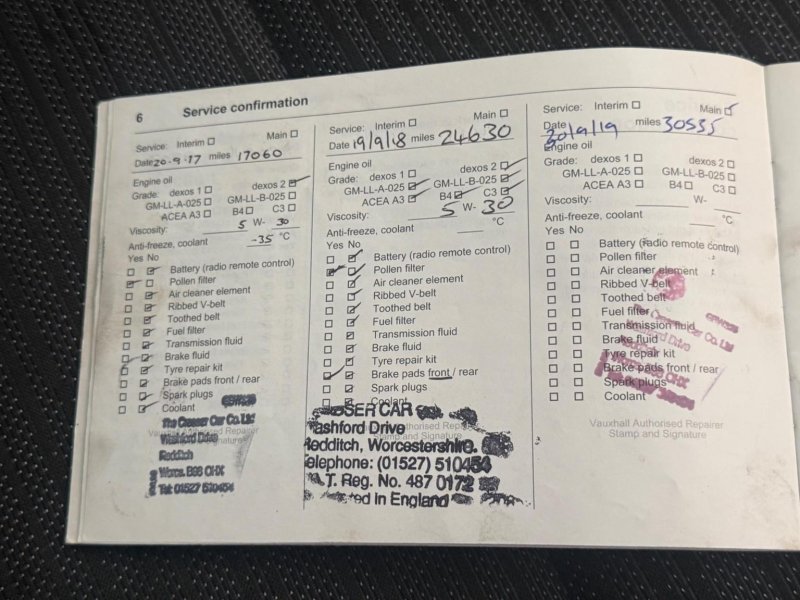 6 Service confirmation
Service: Interim ☐ Main ☐
Date 20-9-17 miles 17060
Engine oil
Grade: dexos 1 ☐ dexos 2 ☑
GM-LL-A-025 ☐ GM-LL-B-025 ☐
ACEA A3 ☐ B4 ☐ C3 ☐
Viscosity: 5 W- 30
Anti-freeze, coolant -35 °C
Yes No
Battery (radio remote control)
Pollen filter
Air cleaner element
Ribbed V-belt
Toothed belt
Fuel filter
Transmission fluid
Brake fluid
Tyre repair kit
Brake pads front / rear
Spark plugs
Coolant
Vauxhall Authorised Repairer
Stamp and Signature
The Cresser Car Co. Ltd
Washford Drive
Redditch
Worcs. B98 0HX
Tel: 01527 510454
Service: Interim ☐ Main ☐
Date 19/9/18 miles 24630
Engine oil
Grade: dexos 1 ☐ dexos 2 ☑
GM-LL-A-025 ☑ GM-LL-B-025 ☑
ACEA A3 ☑ B4 ☑ C3 ☑
Viscosity: 5 W- 30
Anti-freeze, coolant °C
Yes No
Battery (radio remote control)
Pollen filter
Air cleaner element
Ribbed V-belt
Toothed belt
Fuel filter
Transmission fluid
Brake fluid
Tyre repair kit
Brake pads front / rear
Spark plugs
Coolant
Authorised Repairer
Stamp and Signature
SSER CAR
ashford Drive
Redditch, Worcestershire.
elephone: (01527) 510454
A.T. Reg. No. 487 0172
ted in England
Service: Interim ☐ Main ☑
Date 30/9/19 miles 30535
Engine oil
Grade: dexos 1 ☐ dexos 2 ☐
GM-LL-A-025 ☐ GM-LL-B-025 ☐
ACEA A3 ☐ B4 ☐ C3 ☐
Viscosity: W-
Anti-freeze, coolant °C
Yes No
Battery (radio remote control)
Pollen filter
Air cleaner element
Ribbed V-belt
Toothed belt
Fuel filter
Transmission fluid
Brake fluid
Tyre repair kit
Brake pads front / rear
Spark plugs
Coolant
The Cresser Car Co. Ltd
Washford Drive
Redditch
Worcs B98 0HX
Vauxhall Authorised Repairer
Stamp and Signature